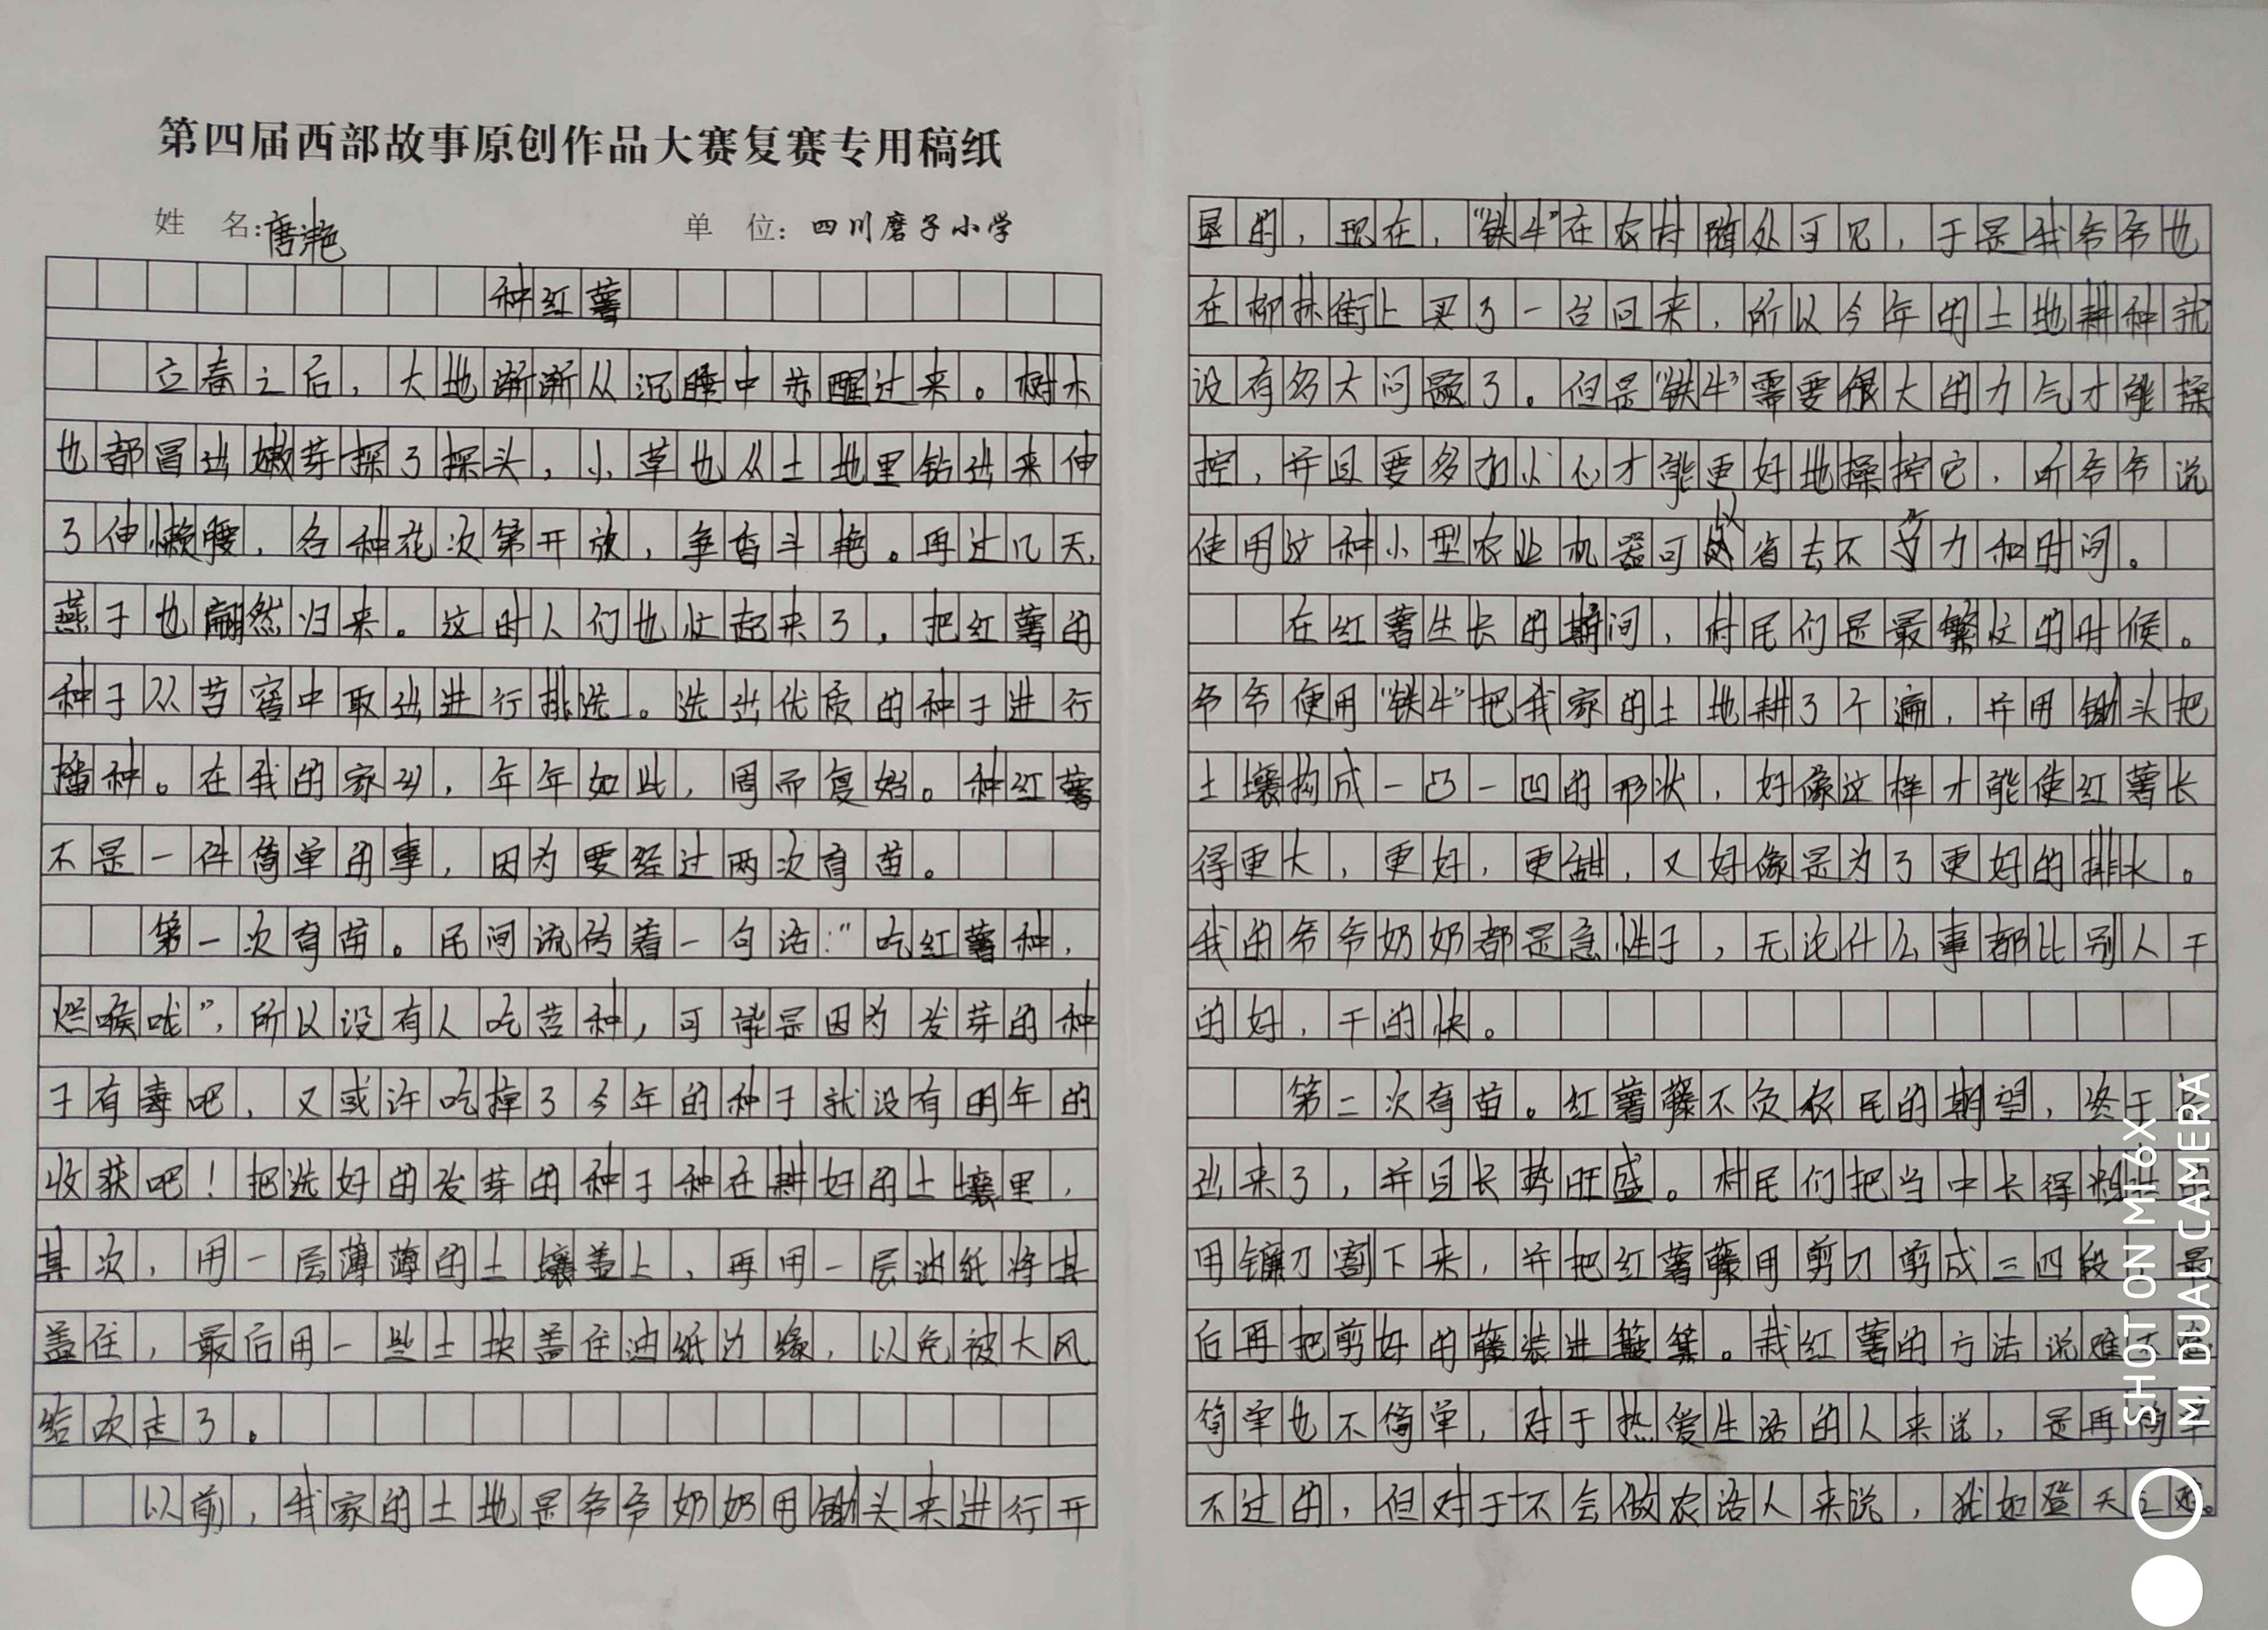 第四届西部故事原创作品大赛复赛专用稿纸
姓 名:唐滟 单 位:四川磨子小学
种红薯
立春之后,大地渐渐从沉睡中苏醒过来。树木
也都冒出嫩芽探了探头,小草也从土地里钻出来伸
了伸懒腰,各种花次第开放,争香斗艳。再过几天,
燕子也翩然归来。这时人们也忙起来了,把红薯的
种子从苕窖中取出进行排选。选出优质的种子进行
播种。在我的家乡,年年如此,周而复始。种红薯
不是一件简单的事,因为要经过两次育苗。
第一次育苗。民间流传着一句话:“吃红薯种,
烂喉咙”,所以没有人吃苕种,可能是因为发芽的种
子有毒吧,又或许吃掉了今年的种子就没有明年的
收获吧!把选好的发芽的种子种在耕好的土壤里,
其次,用一层薄薄的土壤盖上,再用一层油纸将其
盖住,最后用一些土块盖住油纸边缘,以免被大风
给吹走了。
以前,我家的土地是爷爷奶奶用锄头来进行开
垦的,现在,“铁牛”在农村随处可见,于是我爷爷也
在柳林街上买了一台回来,所以今年的土地耕种就
没有多大问题了。但是“铁牛”需要很大的力气才能操
控,并且要多加小心才能更好地操控它,听爷爷说
使用这种小型农业机器可以省去不少力和时间。
在红薯生长的期间,村民们是最繁忙的时候。
爷爷便用“铁牛”把我家的土地耕了个遍,并用锄头把
土壤构成一凸一凹的形状,好像这样才能使红薯长
得更大,更好,更甜,又好像是为了更好的排水。
我的爷爷奶奶都是急性子,无论什么事都比别人干
的好,干的快。
第二次育苗。红薯藤不负农民的期望,终于
出来了,并且长势旺盛。村民们把当中长得粗
用镰刀割下来,并把红薯藤用剪刀剪成三四段,最
后再把剪好的藤装进簸箕。栽红薯的方法说难不难
简单也不简单,对于热爱生活的人来说,是再简单
不过的,但对于不会做农活人来说,犹如登天之
SHOT ON MI 6X
MI DUAL CAMERA